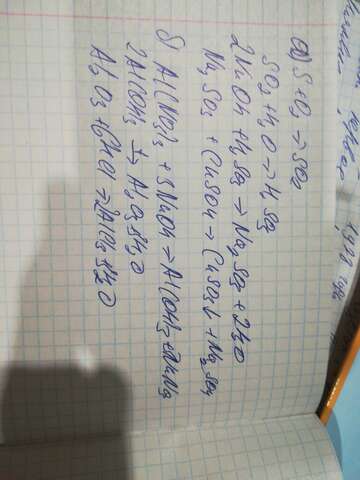 а) S + O₂ → SO₂
SO₂ + H₂O → H₂SO₃
2NaOH + H₂SO₃ → Na₂SO₃ + 2H₂O
Na₂SO₃ + CuSO₄ → CuSO₃↓ + Na₂SO₄
б Al(NO₃)₃ + 3NaOH → Al(OH)₃ + 3NaNO₃
2Al(OH)₃ t→ Al₂O₃ 3H₂O
Al₂O₃ + 6HCl → 2AlCl₃ + 3H₂O